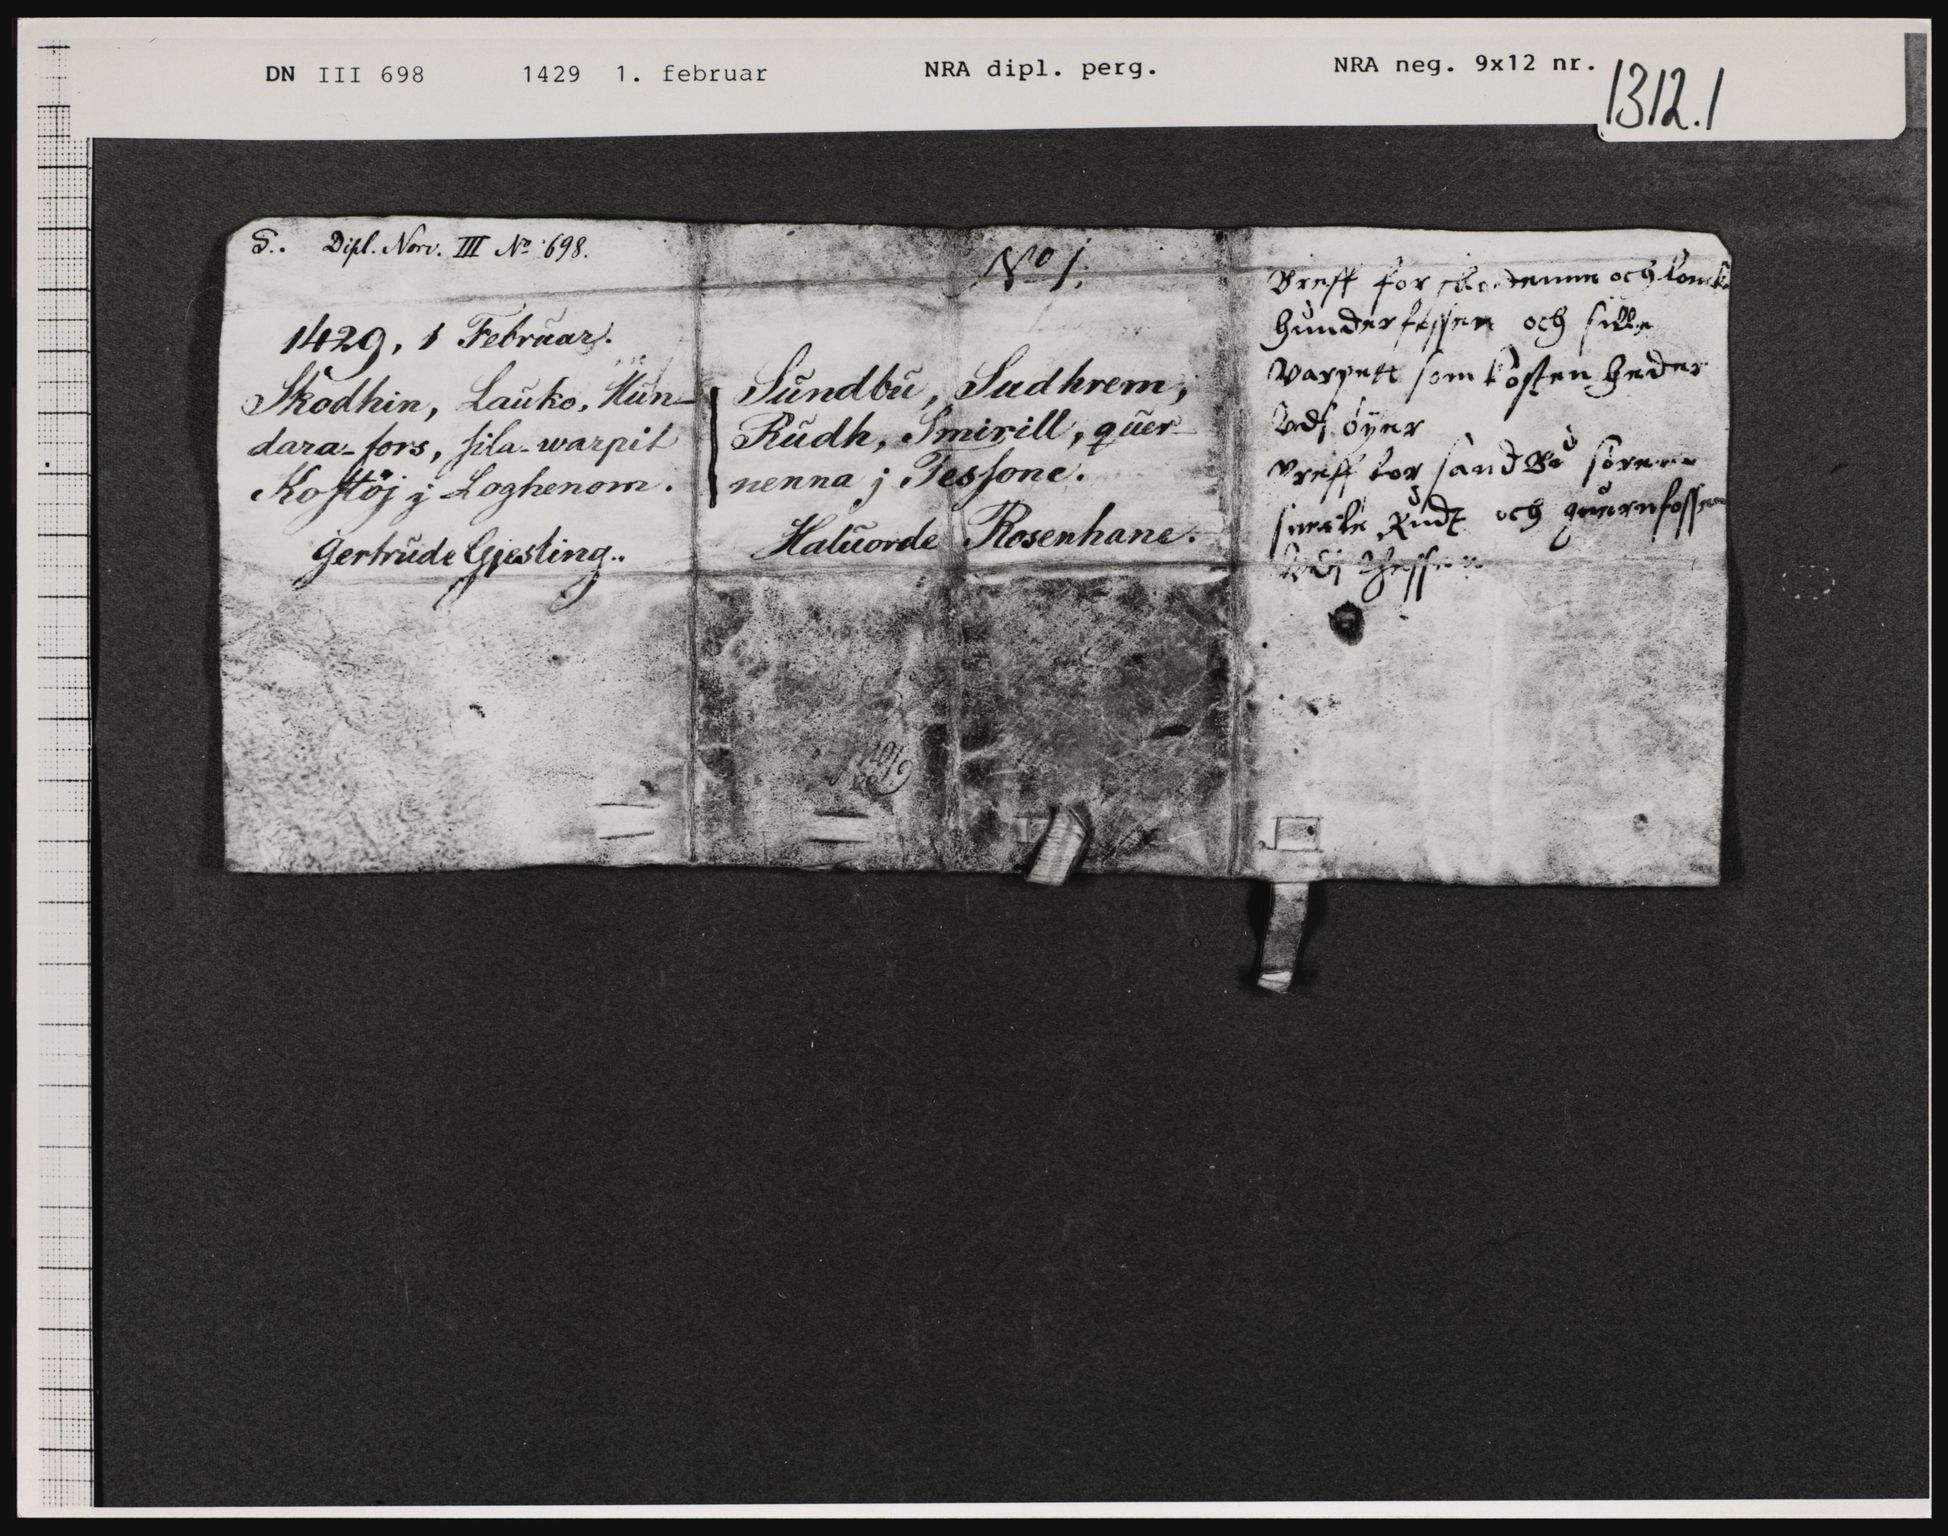 DN III 698 1429 1. februar NRA dipl. perg. NRA neg. 9x12 nr. 1312.1
S.. Dipl. Norv. III No 698.
1429, 1 Februar.
Skodhin, Lauko, Hun-
dara-fors, sila-warpit
Kostöj j Loghenom.
Gertrude Gjesting..
No 1.
Sundbu, Sudhrem,
Rudh, Smirill, quer-
nenna j Tessone.
Haluorde Rosenhane.
Breff for och
hunderfossen och sille
varpett som kosten heder
Vdj öyer
breff for sandbu
Rudt och quernfossen
Vdj